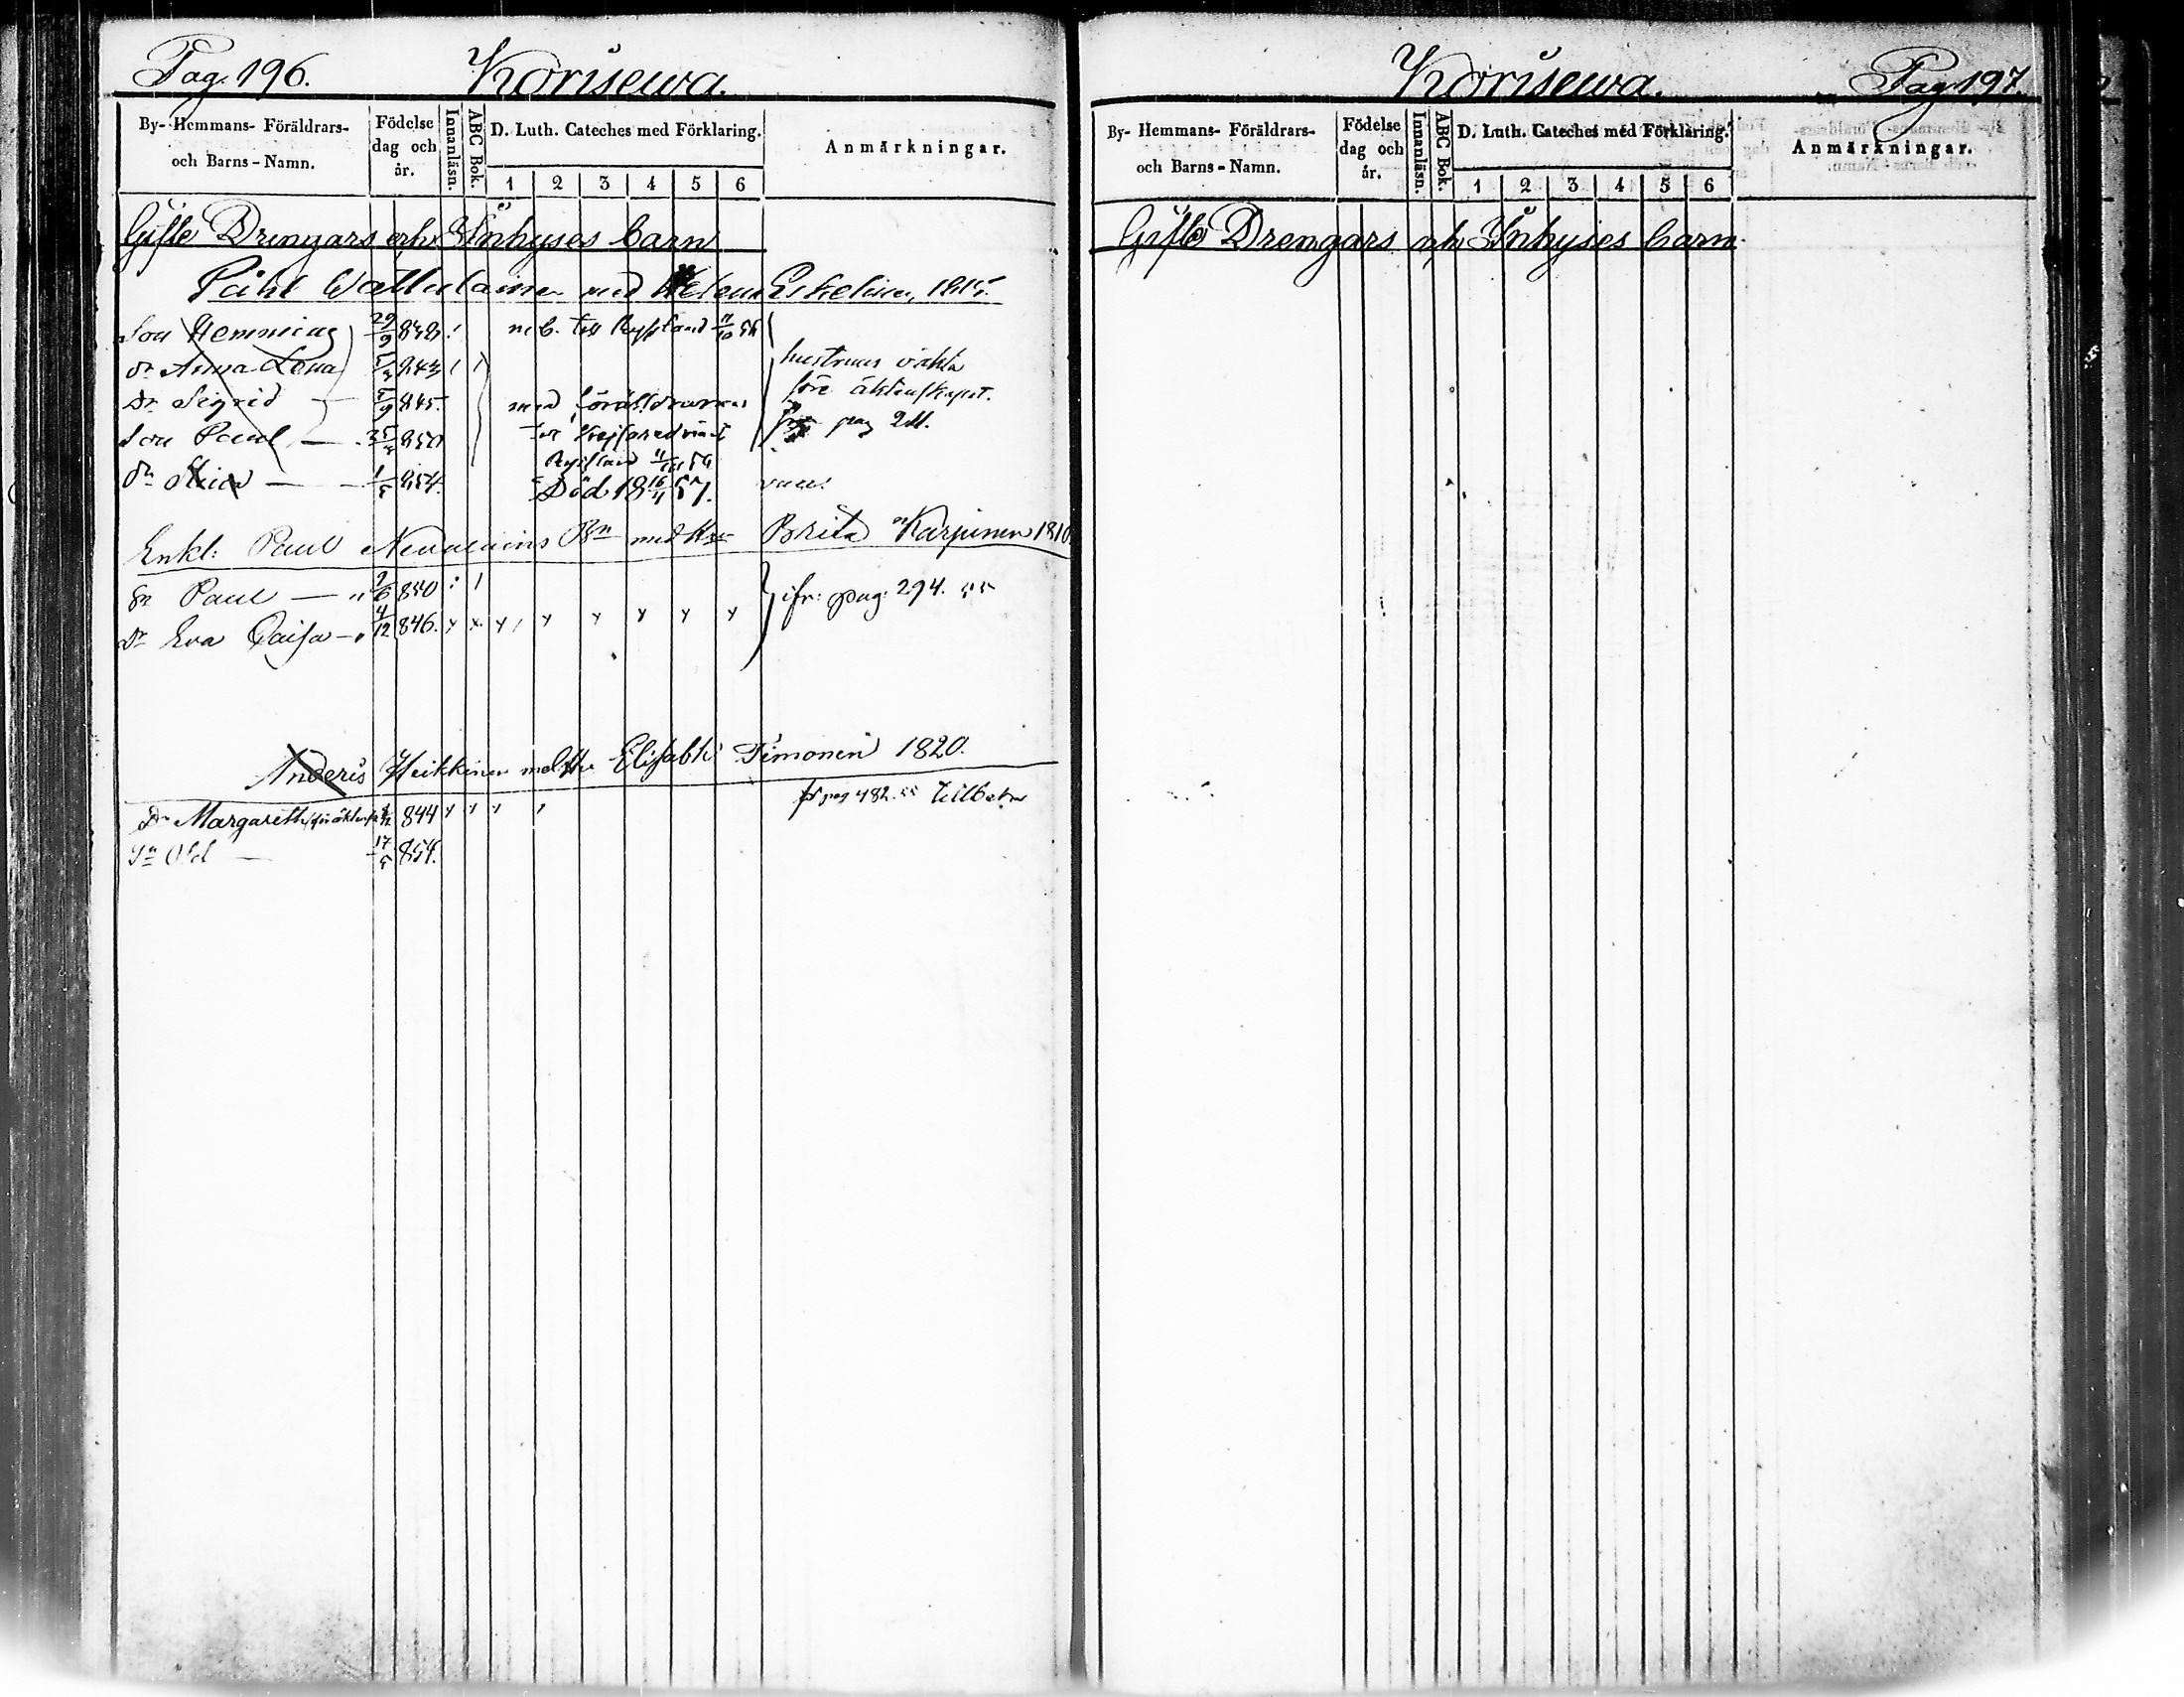 Pag. 196. Korisewa.
By- Hemmans- Föräldrars- och Barns-Namn. Födelse dag och år. Innanläsn. ABC Bok. D. Luth. Cateches med Förklaring. 1 2 3 4 5 6 Anmärkningar.
Gifte Drengars och Inhyses barn
Påhl med Helena Eskelinen, 1815.
Son Hemming 29/9 842 till Ryssland 11/10 56
Dr Anna Lena 843 hustruns oäkta
före äktenskapet.
Dr Sigrid 845. med föräldrarna
Son Paul 850 pag 211.
Ryssland 11/10 56
Dr 1/5 854. Död 18 16/4 57.
Enkl: Paul med Brita Karjunen 1810
Sn Paul 2/6 850 ifr: pag: 294. 55
Dr Eva Caisa 4/12 846.
Anders Heikkinen med Elisabth Timonen 1820.
Dr Margareth 844 fr pag 482. 55
Sn Olof 17/5 854.
Korisewa. Pag 197.
By- Hemmans- Föräldrars- och Barns-Namn. Födelse dag och år. Innanläsn. ABC Bok. D. Luth. Cateches med Förklaring. 1 2 3 4 5 6 Anmärkningar.
Gifte Drengars och Inhyses barn.